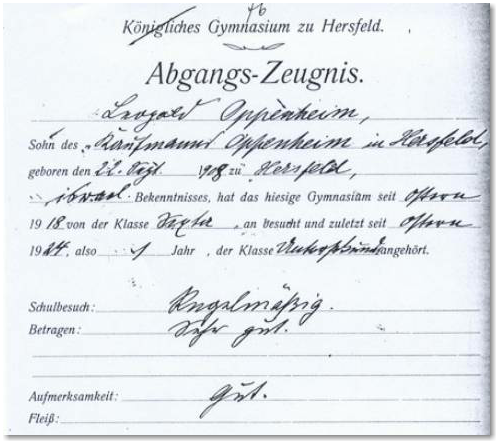 76
Königliches Gymnasium zu Hersfeld.
Abgangs-Zeugnis.
Leopold Oppenheim,
Sohn des Kaufmanns Oppenheim in Hersfeld,
geboren den 22. Sept. 1908 zu Hersfeld,
israel. Bekenntnisses, hat das hiesige Gymnasium seit Ostern
1918 von der Klasse Sexta an besucht und zuletzt seit Ostern
1924, also 1 Jahr, der Klasse Untersekunda angehört.
Schulbesuch: Regelmäßig.
Betragen: Sehr gut.
Aufmerksamkeit: Gut.
Fleiß: